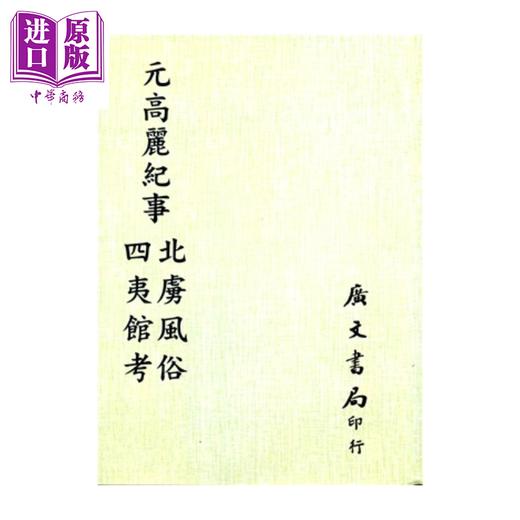 进口
原版
中华商务
元高麗紀事
北虜風俗
四夷館考
廣文書局印行